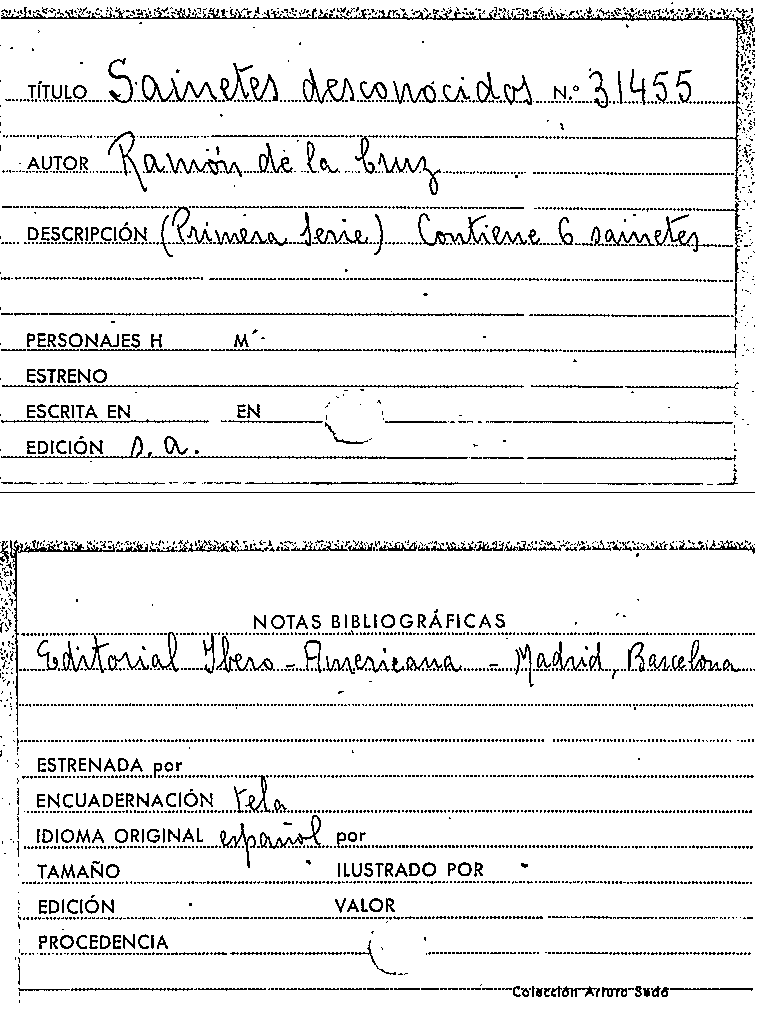 TÍTULO Sainetes desconocidos N.º 31455
AUTOR Ramón de la Cruz
DESCRIPCIÓN (Primera Serie) Contiene 6 sainetes
PERSONAJES H M
ESTRENO
ESCRITA EN EN
EDICIÓN s.a.
NOTAS BIBLIOGRÁFICAS
Editorial Ibero-Americana - Madrid, Barcelona
ESTRENADA por
ENCUADERNACIÓN tela
IDIOMA ORIGINAL español por
TAMAÑO ILUSTRADO POR
EDICIÓN VALOR
PROCEDENCIA
Colección Arturo Sedó